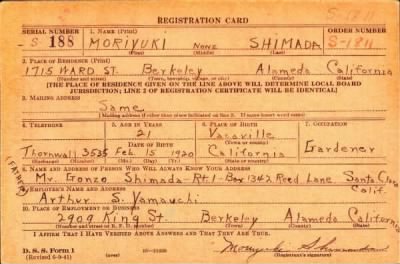 REGISTRATION CARD
SERIAL NUMBER 1. NAME (Print) ORDER NUMBER
S- 188 MORIYUKI NONE SHIMADA S-1811
(First) (Middle) (Last)
2. PLACE OF RESIDENCE (Print)
1715 WARD ST. Berkeley Alameda California
(Number and street) (Town, township, village, or city) (County) (State)
[THE PLACE OF RESIDENCE GIVEN ON THE LINE ABOVE WILL DETERMINE LOCAL BOARD
JURISDICTION; LINE 2 OF REGISTRATION CERTIFICATE WILL BE IDENTICAL]
3. MAILING ADDRESS
Same
[Mailing address if other than place indicated on line 2. If same insert word same]
4. TELEPHONE 5. AGE IN YEARS 6. PLACE OF BIRTH 7. OCCUPATION
21 Vacaville
DATE OF BIRTH Gardener
Thornwall 3535 Feb. 15 1920 California
(Exchange) (Number) (Mo.) (Day) (Yr.) (State or country)
FATHER
8. NAME AND ADDRESS OF PERSON WHO WILL ALWAYS KNOW YOUR ADDRESS
Mr. Gonzo Shimada-Rt.1-Box 1342 Reed Lane Santa Clara
Calif.
9. EMPLOYER'S NAME AND ADDRESS
Arthur S. Yamauchi
10. PLACE OF EMPLOYMENT OR BUSINESS
2909 King St. Berkeley Alameda California
(Number and street or R. F. D. number) (Town) (County) (State)
I AFFIRM THAT I HAVE VERIFIED ABOVE ANSWERS AND THAT THEY ARE TRUE.
D. S. S. Form 1
(Revised 6-9-41) (over)
(Registrant's signature)